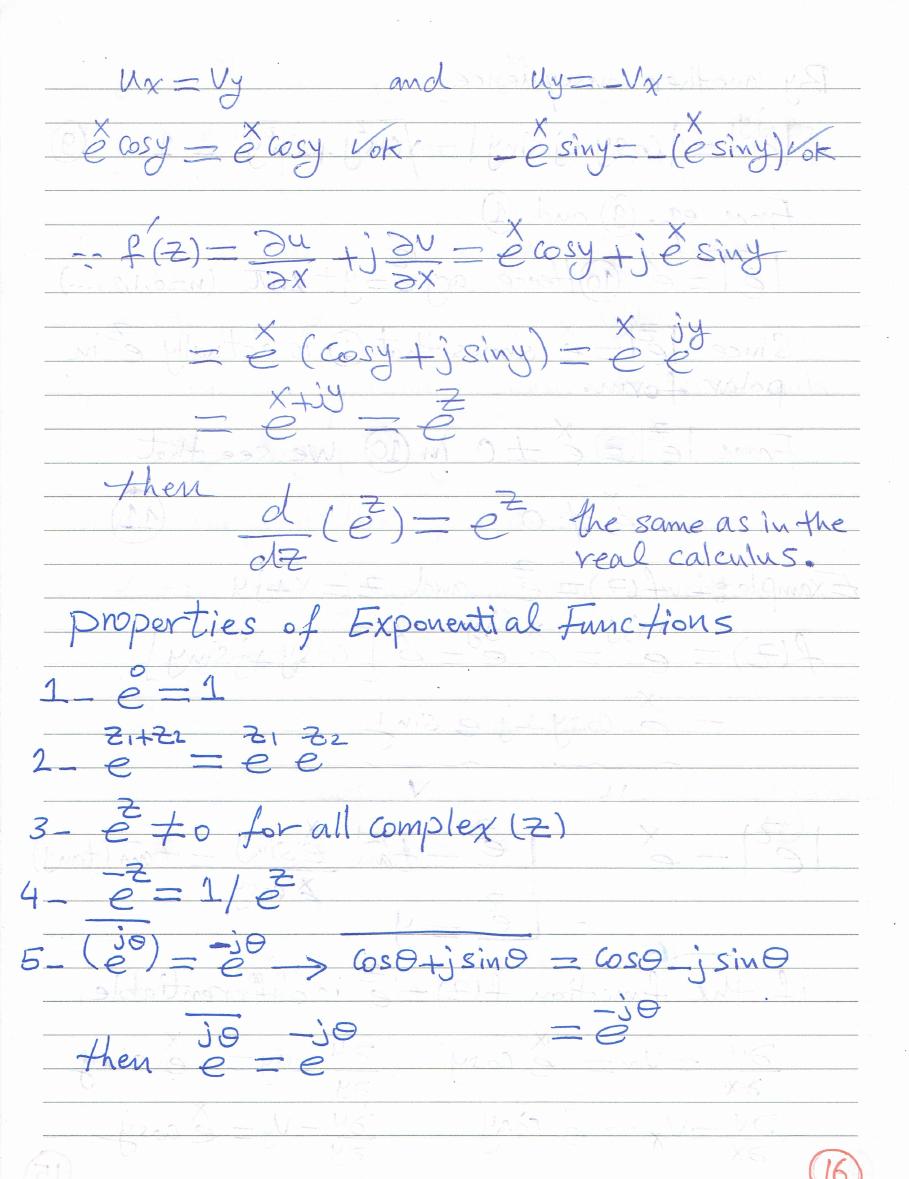 Ux = Vy and Uy = -Vx
e^x cosy = e^x cosy ✓ok -e^x siny = -(e^x siny) ✓ok
∵ f'(z) = ∂u/∂x + j ∂v/∂x = e^x cosy + j e^x siny
= e^x (cosy + j siny) = e^x e^jy
= e^x+jy = e^z
then
d/dz (e^z) = e^z the same as in the
real calculus.
properties of Exponential Functions
1- e^0 = 1
2- e^z1+z2 = e^z1 e^z2
3- e^z ≠ 0 for all complex (z)
4- e^-z = 1/e^z
5- \overline{(e^jθ)} = e^-jθ → \overline{cosθ+jsinθ} = cosθ-jsinθ
= e^-jθ
then \overline{e^jθ} = e^-jθ
16